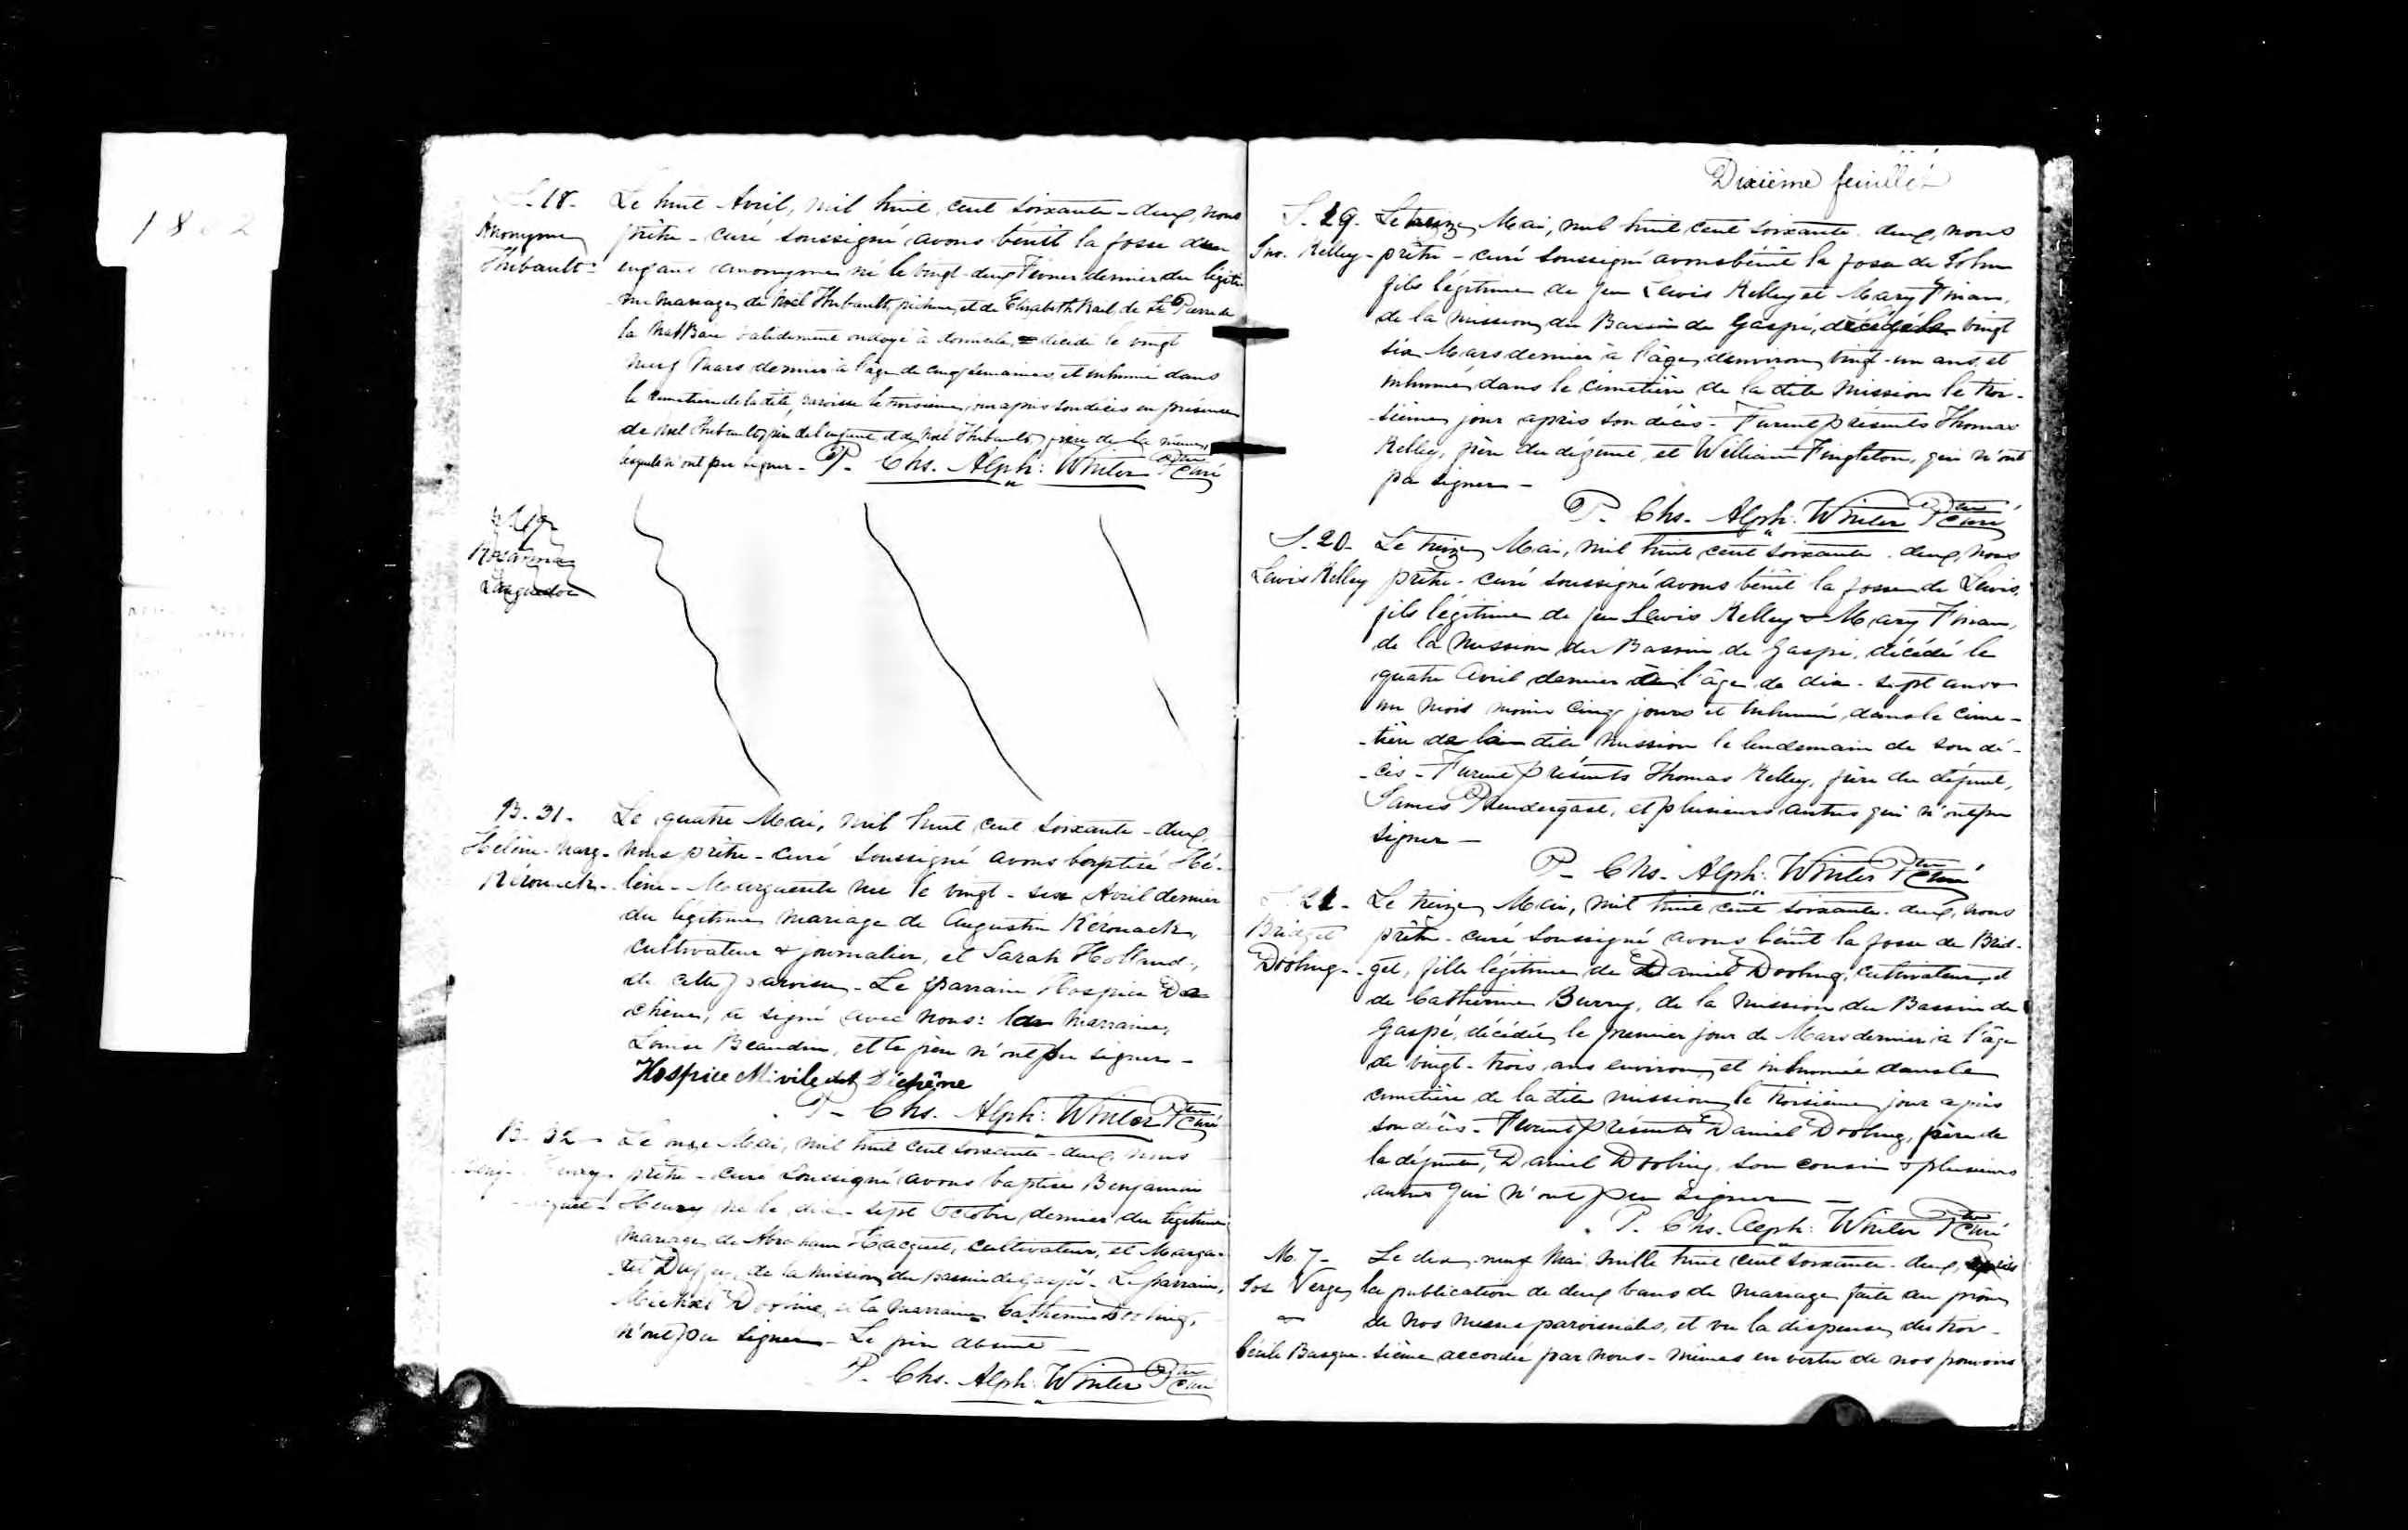 1862
S. 18.
Anonyme
Thibault
Le huit Avril, mil huit cent soixante-deux, nous
prêtre-curé soussigné avons bénit la fosse d'un
enfant anonyme né le vingt-deux Février dernier du légiti-
me mariage de Noël Thibault, pêcheur, et de Elizabeth Rail de St. Pierre de
la Malbaie validement ondoyé à domicile, décédé le vingt
neuf Mars dernier à l'âge de cinq semaines, et inhumé dans
le cimetière de la dite paroisse le troisième jour après son décès en présence
de Noel Thibault père de l'enfant et de Noël Thibault, frère de la même,
lesquels n'ont pu signer - P. Chs. Alph: Winter Ptre Curé
Languedoc
B. 31.
Hélène-Marg-
Kérouack-
Le quatre Mai, mil huit cent soixante-deux,
nous prêtre-curé soussigné avons baptisé Hé-
lène-Marguerite née le vingt-six Avril dernier
du légitime mariage de Augustin Kérouack,
cultivateur & journalier, et Sarah Holland,
de cette paroisse - Le parrain Hospice De
chêne, a signé avec nous: la marraine,
Louise Beaudin, et le père n'ont pu signer -
Hospice Mivile dit Déchêne
P- Chs. Alph: Winter Ptre Curé
B. 32
Henry
Le onze Mai, mil huit cent soixante-deux, nous
prêtre-curé soussigné avons baptisé Benjamin
Henry né le dix-sept Octobre dernier du légitime
mariage de Abraham Hacquet, cultivateur, et Marga-
ret de la mission du Bassin de Gaspé - Le parrain,
Michael Dooling, et la marraine Catherine Dooling,
n'ont pu signer - Le père absent -
P. Chs. Alph: Winter Ptre Curé
Dixième feuillet
S. 19.
Jno. Kelley-
Le treize Mai, mil huit cent soixante-deux, nous
prêtre-curé soussigné avons bénit la fosse de John
fils légitime de feu Lewis Kelley et Mary Finan,
de la mission du Bassin de Gaspé, décédé le vingt
six Mars dernier à l'âge d'environ vingt-un ans et
inhumé dans le cimetière de la dite mission le troi-
-sième jour après son décès - Furent présents Thomas
Kelley, frère du défunt, et William Fingleton, qui n'ont
pu signer -
P. Chs. Alph: Winter Ptre Curé
S. 20-
Lewis Kelley
Le treize Mai, mil huit cent soixante-deux, nous
prêtre-curé soussigné avons bénit la fosse de Lewis,
fils légitime de feu Lewis Kelley & Mary Finan,
de la mission du Bassin de Gaspé, décédé le
quatre Avril dernier à l'âge de dix-sept ans &
un mois moins cinq jours et inhumé dans le cime-
-tière de la dite mission le lendemain de son dé-
-cès - Furent présents Thomas Kelley, frère du défunt,
James Prendergast, et plusieurs autres qui n'ont pu
signer -
P- Chs. Alph: Winter Ptre Curé
S. 21-
Bridget
Dooling-
Le treize Mai, mil huit cent soixante-deux, nous
prêtre-curé soussigné avons bénit la fosse de Brid-
-get, fille légitime de Daniel Dooling, cultivateur, et
de Catherine Burry, de la mission du Bassin de
Gaspé, décédée le premier jour de Mars dernier à l'âge
de vingt-trois ans environ, et inhumée dans le
cimetière de la dite mission le troisième jour après
son décès - Furent présents Daniel Dooling, père de
la défunte, Daniel Dooling, son cousin & plusieurs
autres qui n'ont pu signer -
P. Chs. Alph: Winter Ptre Curé
M. 7-
Jos Verge
&
Cécile Basque
Le dix-neuf Mai mille huit cent soixante-deux, après
la publication de deux bans de mariage faite au prône
de nos messes paroissiales, et vu la dispense du troi-
-sième accordée par nous-mêmes en vertu de nos pouvoirs